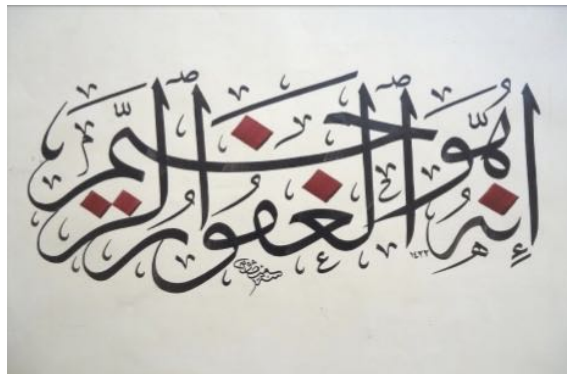 إنه هو الغفور الرحيم
١٤٢٢